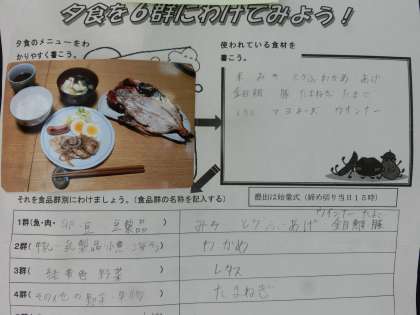 夕食を6群にわけてみよう！
夕食のメニューをわかりやすく書こう。
使われている食材を書こう。
米 みそ とうふ わかめ あげ
金目鯛 豚 たまねぎ たまご
レタス マヨネーズ ウインナー
それを食品群別にわけましょう。（食品群の名称を記入する）
提出は始業式（締め切り当日15時）
1群（魚・肉・卵・豆 豆製品）
ウインナー たまご
みそ とうふ あげ 金目鯛 豚
2群（牛乳・乳製品・小魚・海草）
わかめ
3群（緑黄色野菜）
レタス
4群（その他の野菜・果物）
たまねぎ